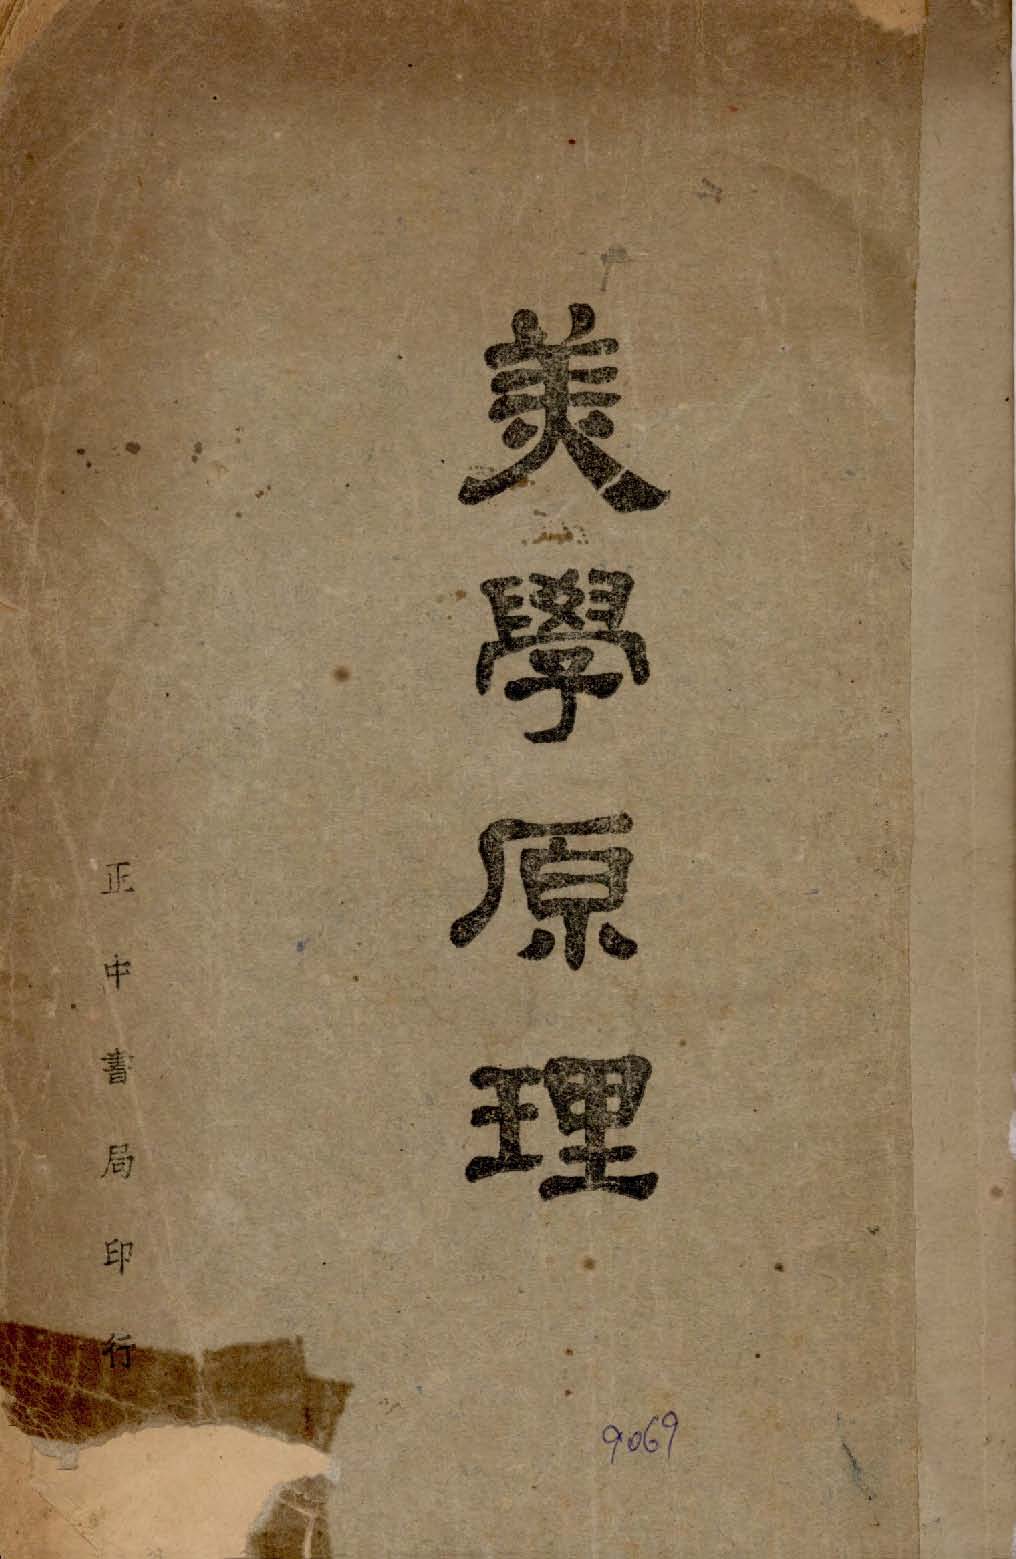 美學原理
正中書局印行
9069